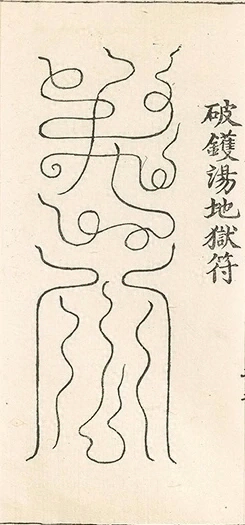 破鑊湯地獄符